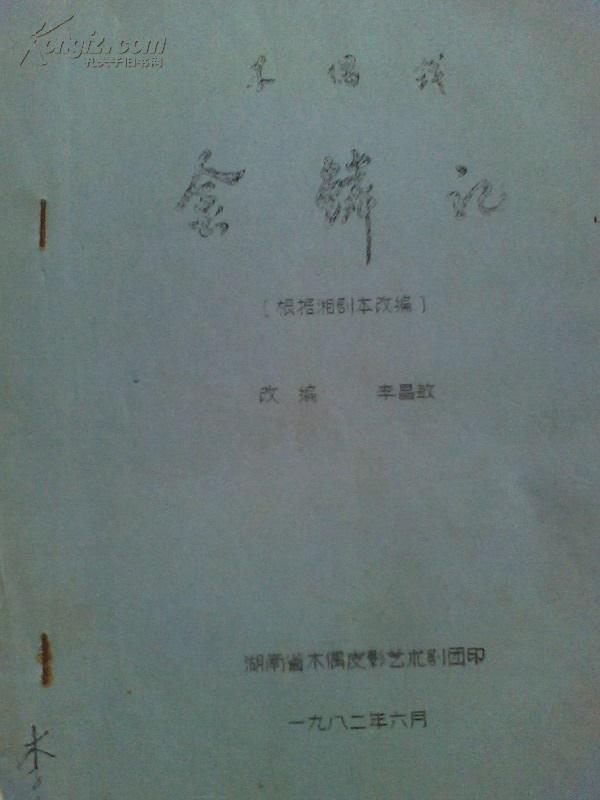 Kongfz.com
孔夫子旧书网
木偶戏
金鳞记
（根据湘剧本改编）
改编 李昌敏
湖南省木偶皮影艺术剧团印
一九八二年六月
木